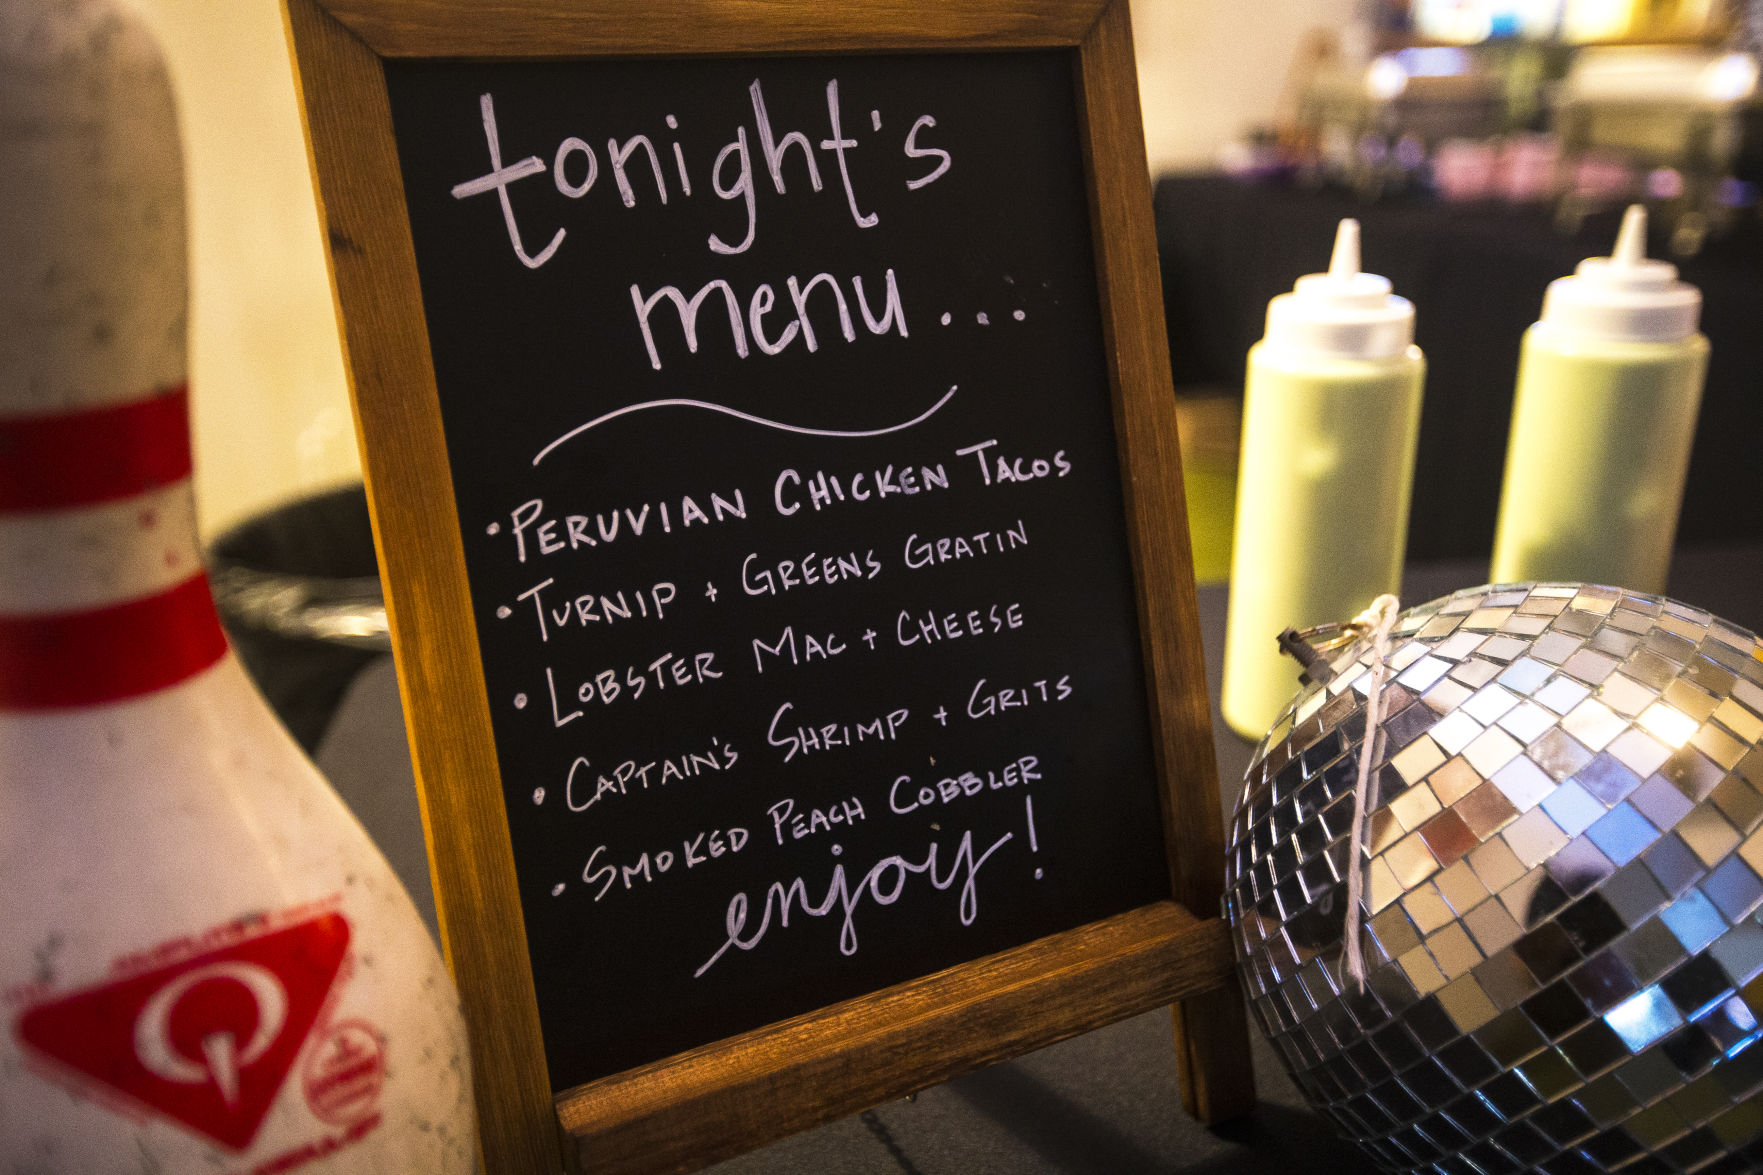 tonight's
menu...
• PERUVIAN CHICKEN TACOS
• TURNIP + GREENS GRATIN
• LOBSTER MAC + CHEESE
• CAPTAIN'S SHRIMP + GRITS
• SMOKED PEACH COBBLER
enjoy!